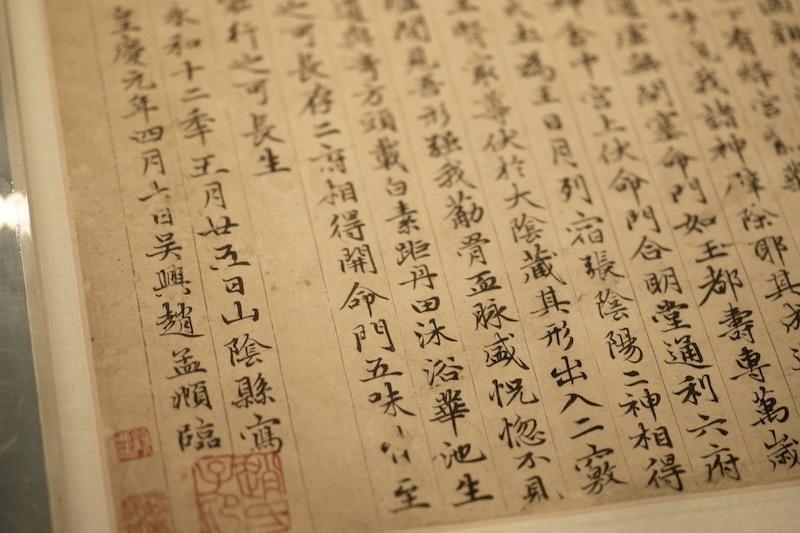 下有絳宮
呼況我諸神辟除耶其成還
道虛無閑塞命門如玉都壽專萬歲
神舍中宮上伏命門合明堂通利六府
為主日月列宿張陰陽二神相得
主腎最尊伏於大陰藏其形出入二竅
閒見吾形強我筋骨血脈盛恍惚不見
道與奇方頭載白素距丹田沐浴華池生
之可長存二府相得開命門五味皆至
行之可長生
永和十二年五月廿五日山陰縣寫
皇慶元年四月六日吳興趙孟頫臨
趙氏子昂